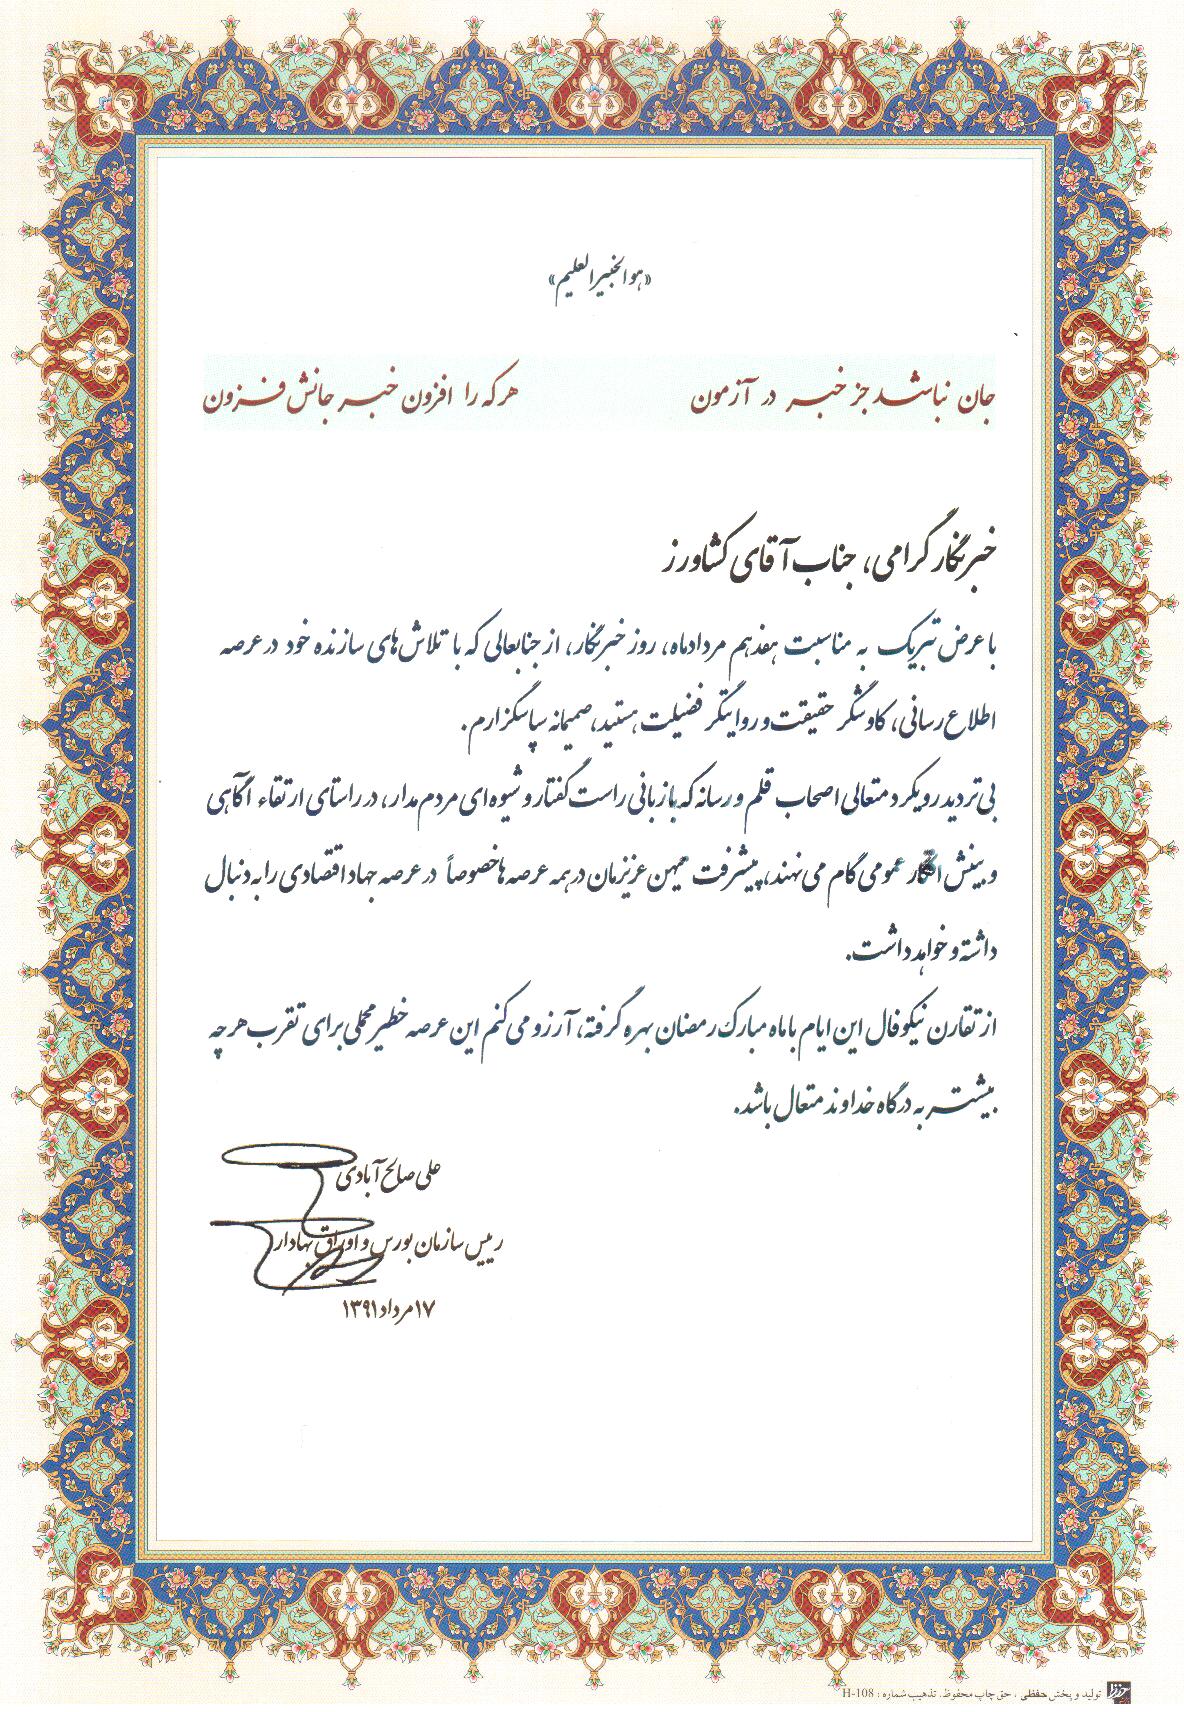 «هو الخبیر العلیم»
جان نباشد جز خبر در آزمون هر که را افزون خبر جانش فزون
خبرنگار گرامی، جناب آقای کشاورز
با عرض تبریک به مناسبت هفدهم مردادماه، روز خبرنگار، از جنابعالی که با تلاش‌های سازنده خود در عرصه
اطلاع رسانی، کاوشگر حقیقت و روایتگر فضیلت هستید، صمیمانه سپاسگزارم.
بی تردید رویکرد متعالی اصحاب قلم و رسانه که با زبانی راست گفتار و شیوه ای مردم مدار، در راستای ارتقاء آگاهی
و بینش افکار عمومی گام می نهند، پیشرفت میهن عزیزمان در همه عرصه ها خصوصاً در عرصه جهاد اقتصادی را به دنبال
داشته و خواهد داشت.
از تقارن نیکوفال این ایام با ماه مبارک رمضان بهره گرفته، آرزو می کنم این عرصه خطیر محملی برای تقرب هر چه
بیشتر به درگاه خداوند متعال باشد.
علی صالح آبادی
رییس سازمان بورس و اوراق بهادار
۱۷ مرداد ۱۳۹۱
تولید و پخش حفظی ، حق چاپ محفوظ. تذهیب شماره : H-108